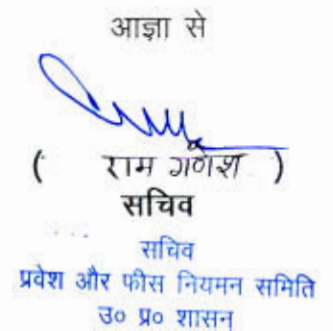 आज्ञा से
( राम गणेश )
सचिव
सचिव
प्रवेश और फीस नियमन समिति
उ० प्र० शासन